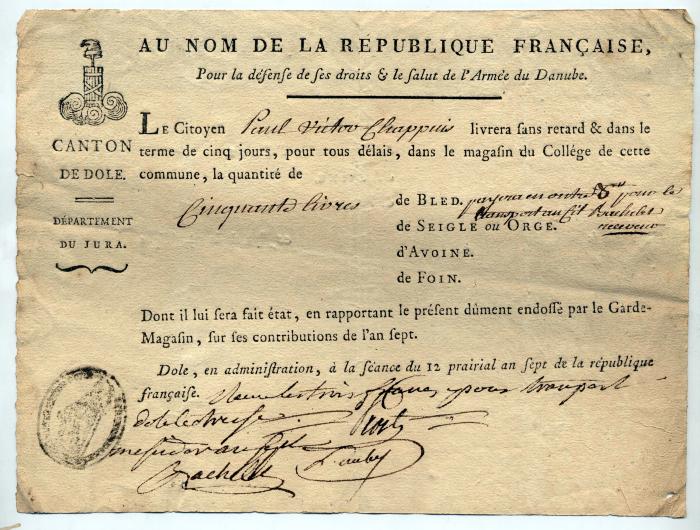 AU NOM DE LA RÉPUBLIQUE FRANÇAISE,
Pour la défense de ses droits & le salut de l'Armée du Danube.
CANTON
DE DOLE.
DÉPARTEMENT
DU JURA.
LE Citoyen Paul Victor Chappuis livrera sans retard & dans le
terme de cinq jours, pour tous délais, dans le magasin du Collége de cette
commune, la quantité de
Cinquante livres
de BLED. payera en outre pour le
transport au Cit Bachelet
de SEIGLE ou ORGE. receveur
d'AVOINE.
de FOIN.
Dont il lui sera fait état, en rapportant le présent dûment endossé par le Garde-
Magasin, sur ses contributions de l'an sept.
Dole, en administration, à la séance du 12 prairial an sept de la république
française. pour transport
Bachelet